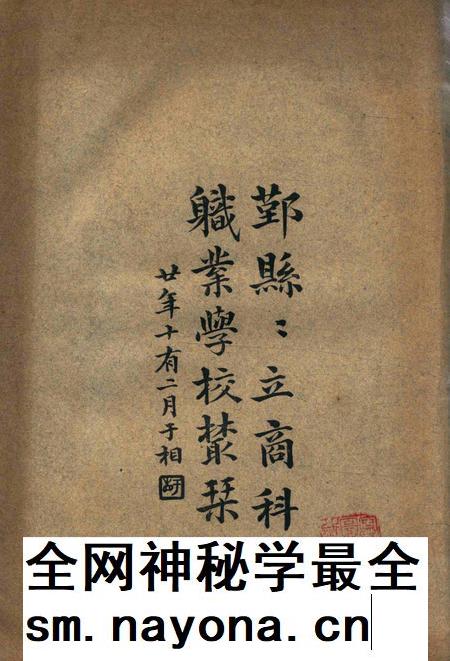 鄞縣〻立商科
職業學校叢栞
廿年十有二月于相
全网神秘学最全
sm.nayona.cn